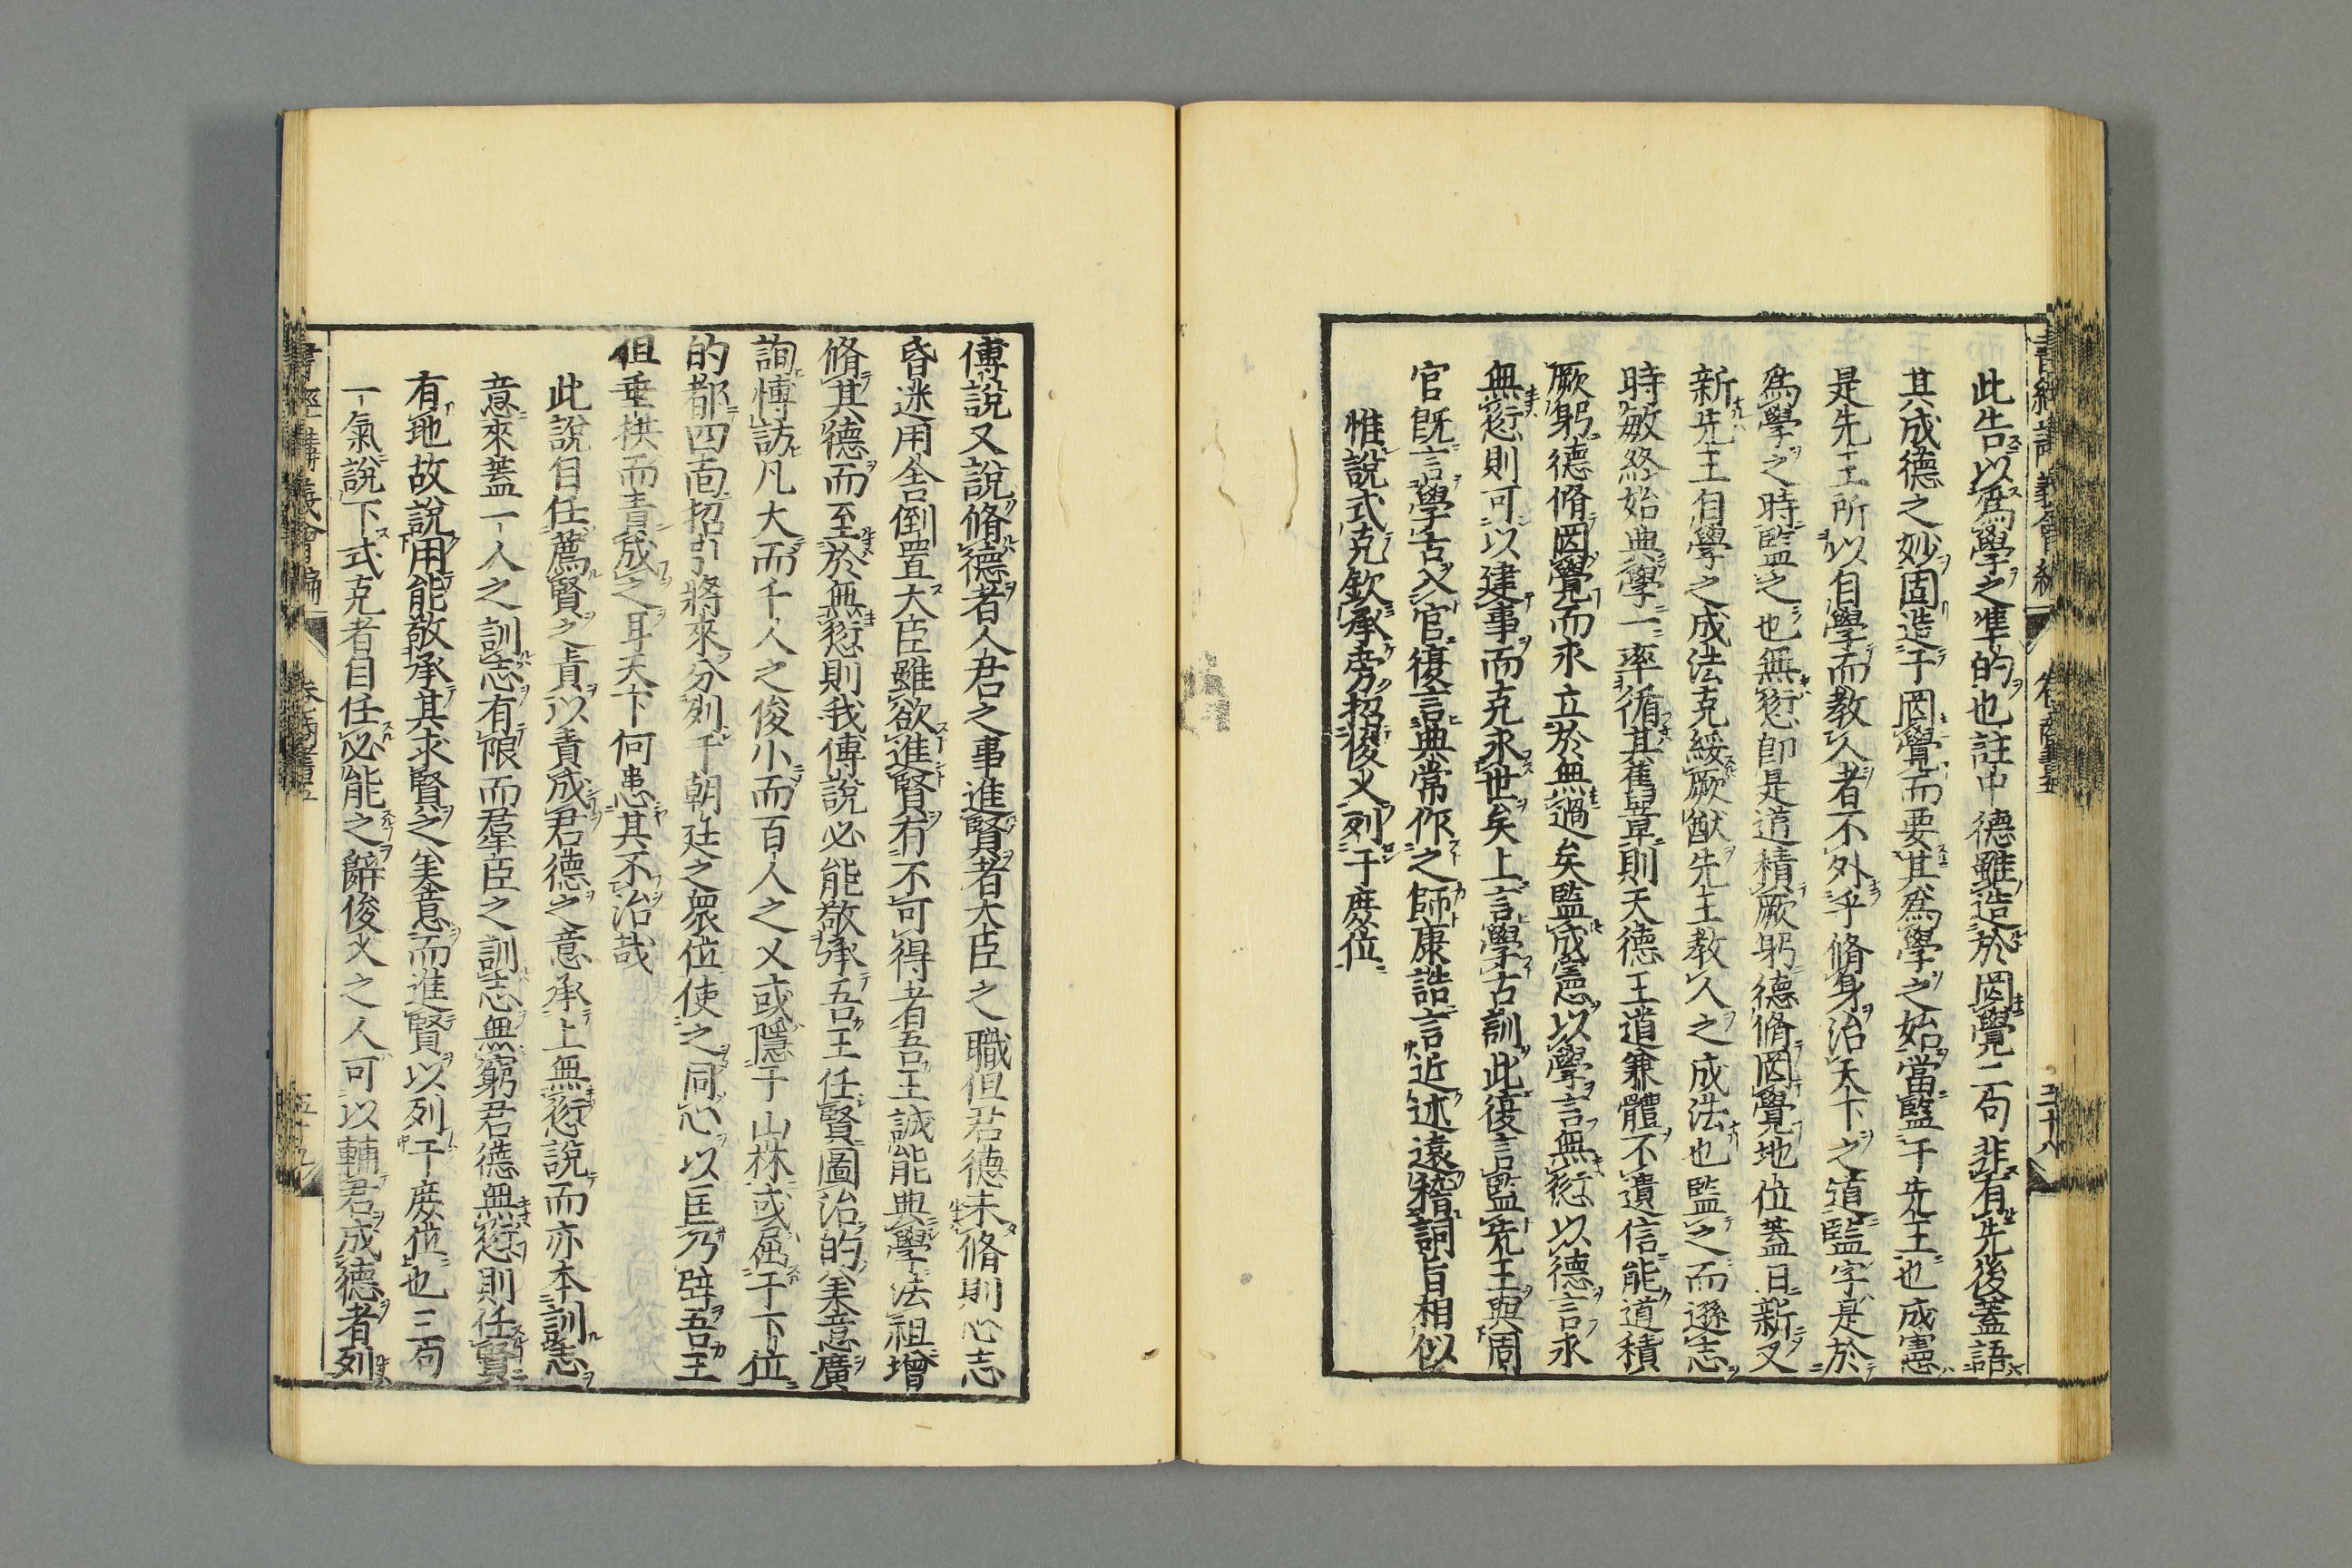 此告以為學之準的也註中德雖造於罔覺二句非有先後蓋語
其成德之妙固造于罔覺而要其為學之始當監于先王也成憲
是先王所以自學而教人者不外乎脩身治天下之道監字是於
為學之時監之也無愆即是道積厥躬德脩罔覺地位蓋日新又
新先王自學之成法克綏厥猷先王教人之成法也監之而遜志
時敏終始典學一率循其舊章則天德王道兼體不遺信能道積
厥躬德脩罔覺而求立於無過矣監成憲以學言無愆以德言永
無愆則可以建事而克永世矣上言學古訓此復言監先王與周
官既言學古入官復言典常作之師康誥言近述遠稽詞旨相似
惟說式克欽承旁招俊乂列于庶位
書經講義會編 卷商書五 五十八
傅說又說脩德者人君之事進賢者大臣之職但君德未脩則心志
昏迷用舍倒置大臣雖欲進賢有不可得者吾王誠能典學法祖增
脩其德而至於無愆則我傅說必能敬承吾王任賢圖治的美意廣
詢博訪凡大而千人之俊小而百人之乂或隱于山林或屈于下位
的都四面招引將來分列于朝廷之眾位使之同心以匡乃辟吾王
但垂拱而責成之耳天下何患其不治哉
此說自任薦賢之責以責成君德之意承上無愆說而亦本訓志
意來蓋一人之訓志有限而羣臣之訓志無窮君德無愆則任賢
有地故說用能敬承其求賢之美意而進賢以列于庶位也三句
一氣說下式克者自任必能之辭俊乂之人可以輔君成德者列
書經講義會編 卷商書五 五十九